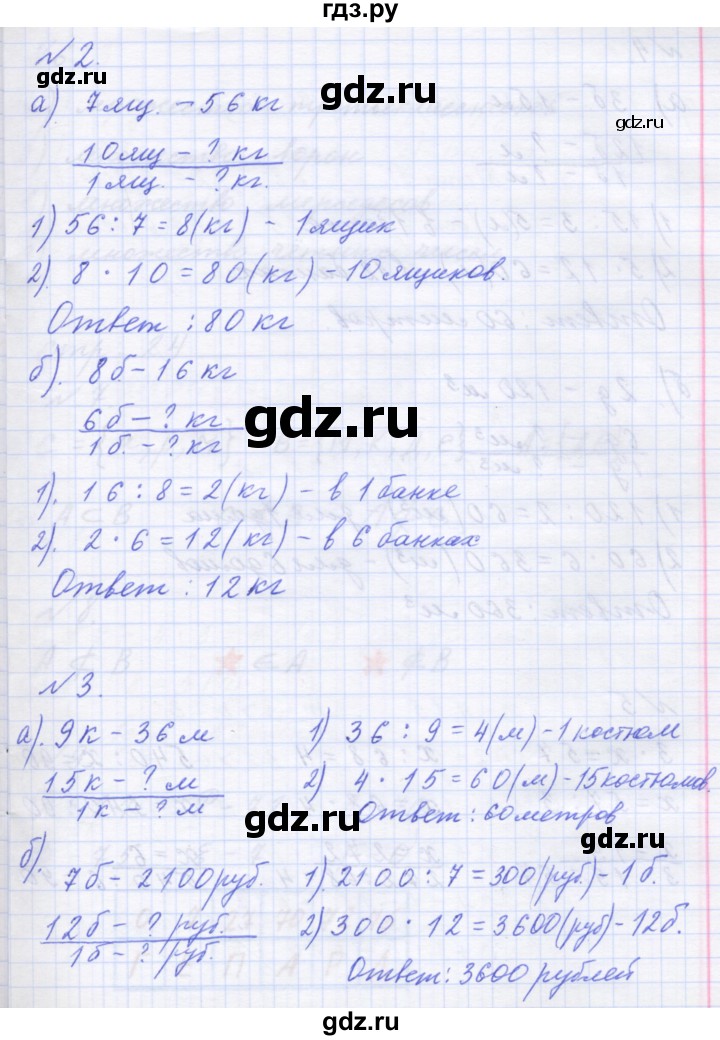 гдз.ру
№2.
gdz.ru
gdz.ru
а) 7 ящ. – 56 кг
gdz.ru
10 ящ – ? кг
1 ящ. – ? кг.
1) 56 : 7 = 8 (кг) – 1 ящик
2). 8 · 10 = 80 (кг) – 10 ящиков.
gdz.ru
gdz.ru
Ответ : 80 кг
б). 8б – 16 кг
gdz.ru
6б – ? кг
1б. – ? кг
gdz.ru
gdz.ru
1). 16 : 8 = 2 (кг) – в 1 банке
2). 2 · 6 = 12 (кг) – в 6 банках
gdz.ru
gdz.ru
Ответ : 12 кг
gdz.ru
№3.
gdz.ru
gdz.ru
а). 9к – 36 м
1) 36 : 9 = 4 (м) – 1 костюм
15к – ? м
2) 4 · 15 = 60 (м) – 15 костюмов.
1к – ? м
Ответ : 60 метров
gdz.ru
gdz.ru
б).
7б – 2100 руб.
1). 2100 : 7 = 300 (руб.) – 1б.
gdz.ru
12б – ? руб.
2) 300 · 12 = 3600 (руб) – 12б.
1б – ? руб.
gdz.ru
gdz.ru
Ответ : 3600 рублей
gdz.ru